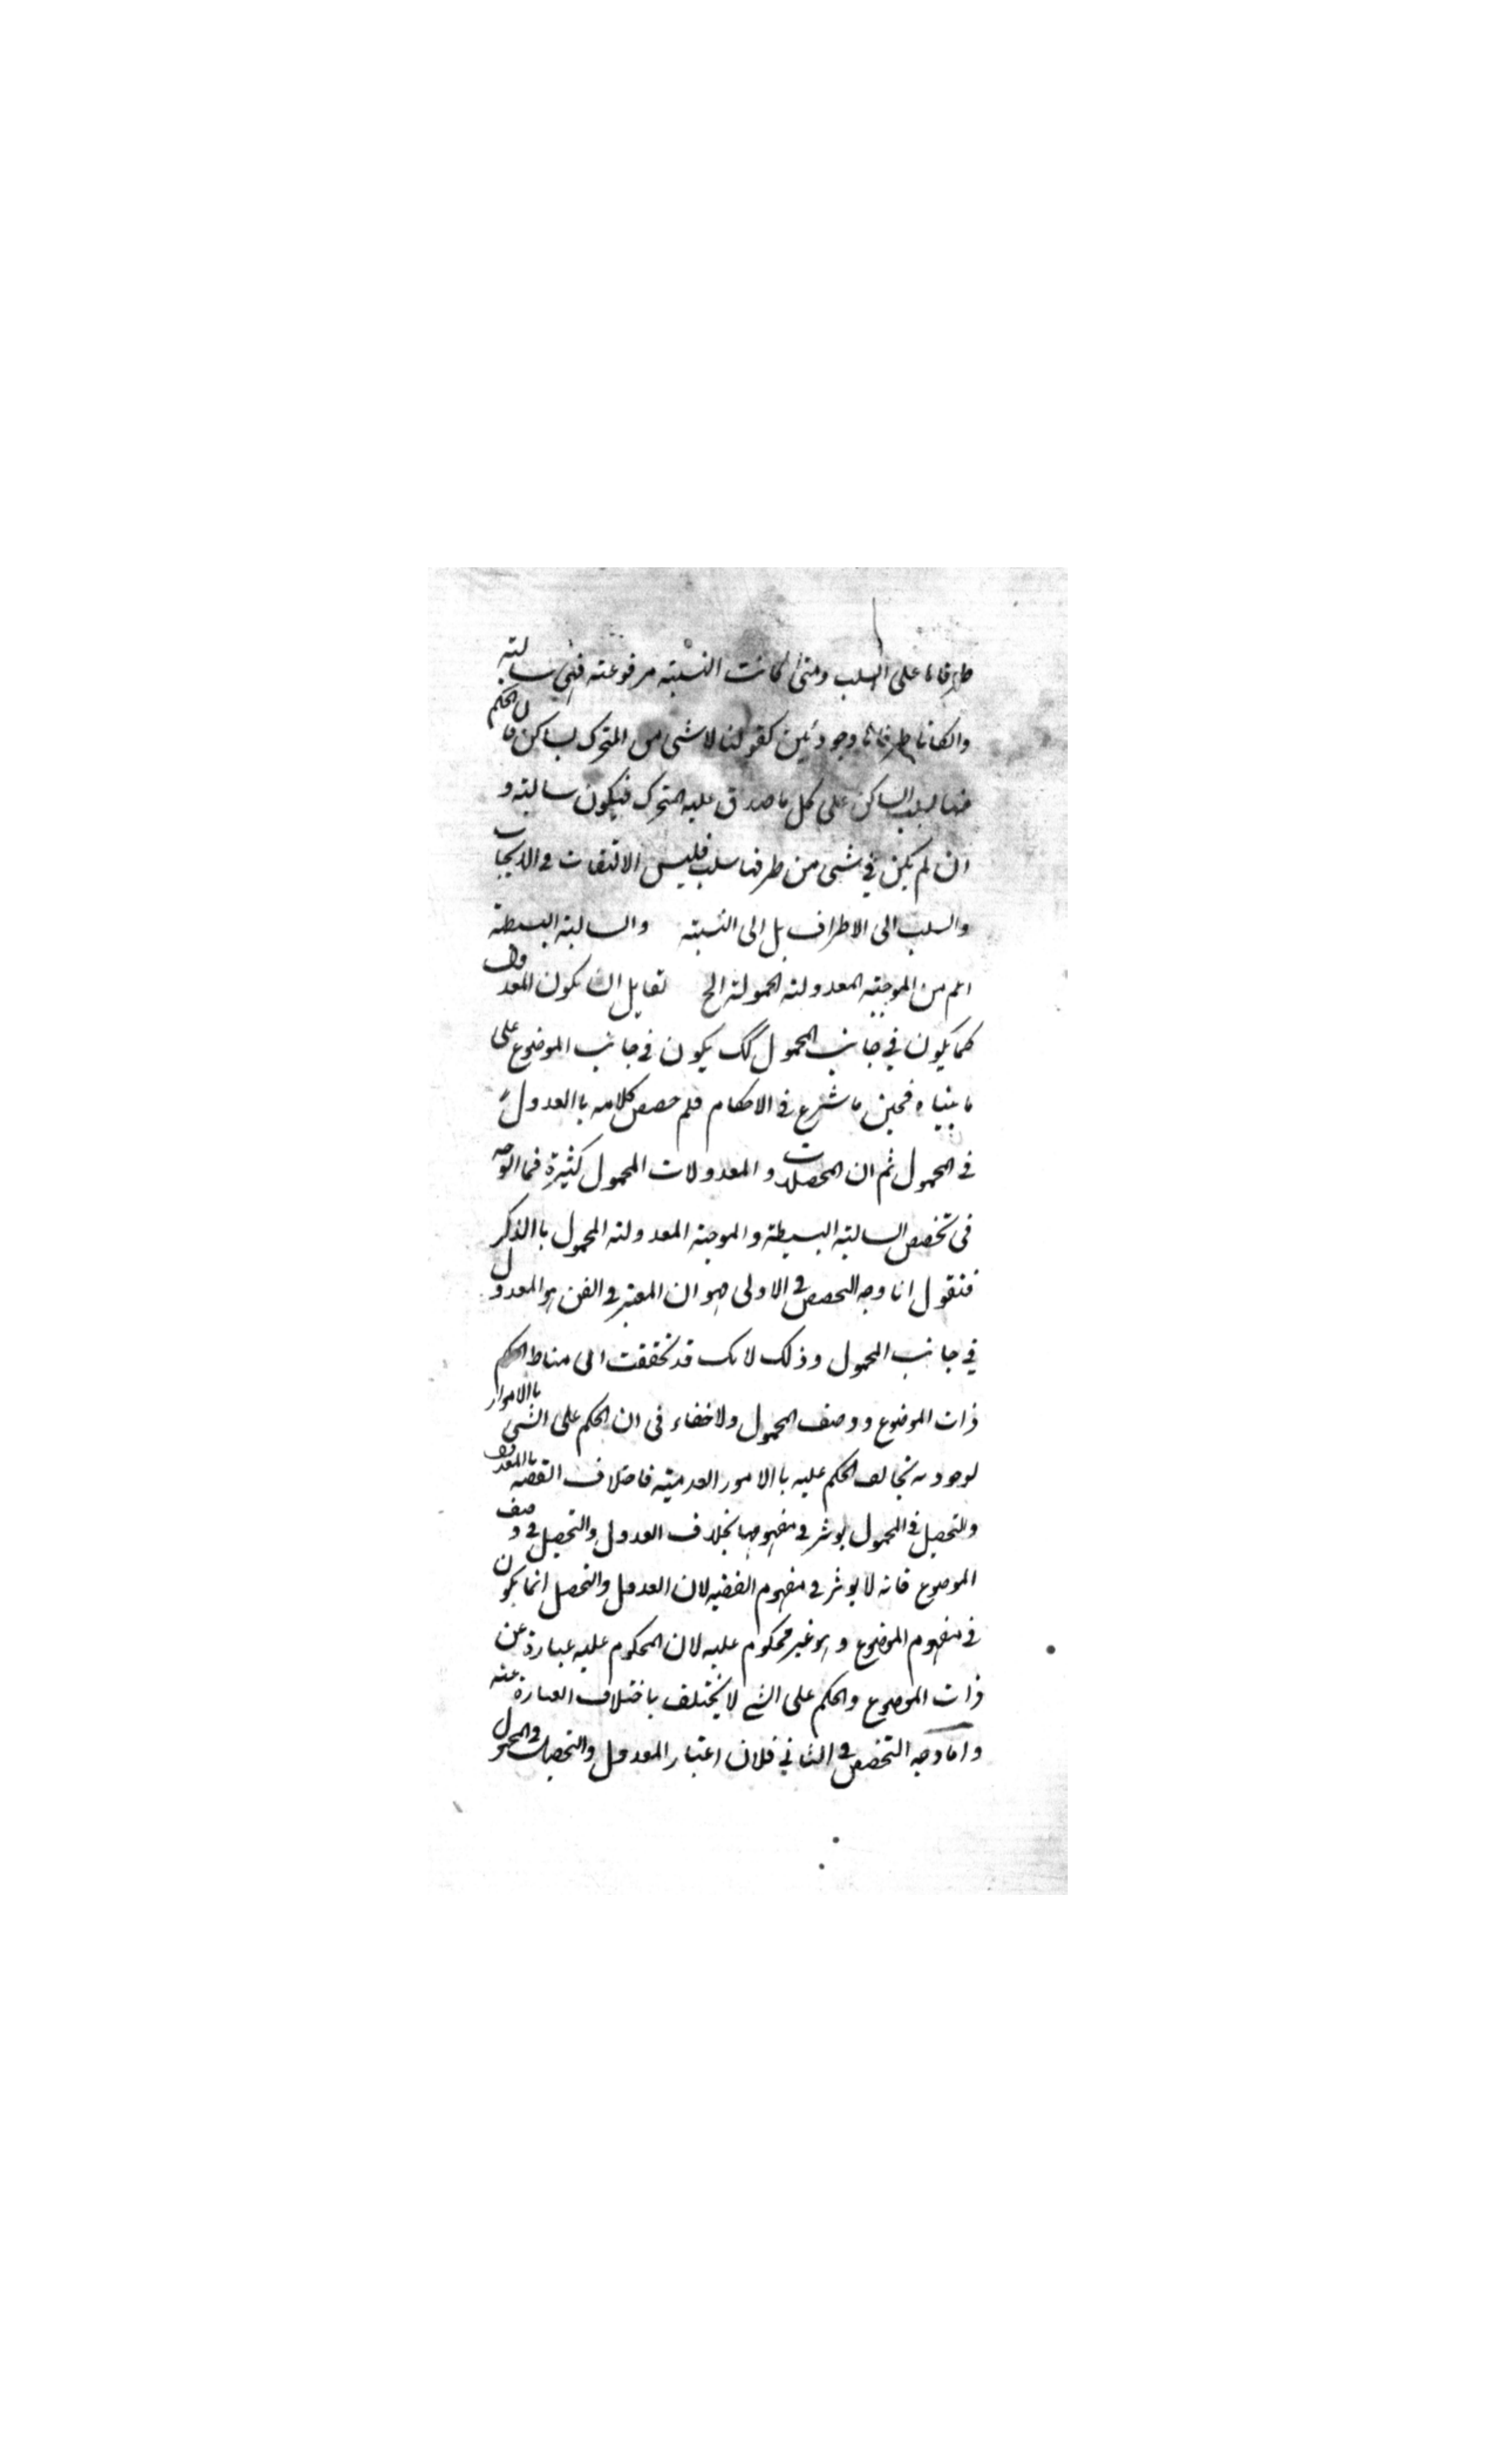 طرفاها على السلب ومتى كانت النسبة مرفوعة فهي سالبة
وان كانا طرفاها وجوديين كقولنا لا شئ من المتحرك بساكن فان الحكم
فيها بسلب الساكن على كل ما صدق عليه المتحرك فيكون سالبة و
ان لم يكن في شئ من طرفيها سلب فليس الالتفات في الايجاب
والسلب الى الاطراف بل الى النسبة والسالبة البسيطة
اعم من الموجبة المعدولة المحمولة الخ لقايل ان يكون المعدول
كما يكون في جانب المحمول كك يكون في جانب الموضوع على
ما بيناه فحين ما شرع في الاحكام فلم خصص كلامه باالعدول
في المحمول ثم ان المحصلات و المعدولات المحمول كثيرة فما الوجه
في تخصيص السالبة البسيطة و الموجبة المعدولة المحمول باالذكر
فنقول اما وجه التخصيص في الاولى هو ان المعتبر في الفن هو المعدول
في جانب المحمول وذلك لانك قد تحققت ان مناط الحكم
ذات الموضوع ووصف المحمول ولا خفاء في ان الحكم على الشئ باالامور
الوجودية تخالف الحكم عليه باالامور العدمية فاختلاف القضية باالعدول
والتحصيل في المحمول يوثر في مفهومها بخلاف العدول والتحصيل في وصف
الموضوع فانه لا يوثر في مفهوم القضية لان العدول والتحصيل انما يكون
في مفهوم الموضوع و هو غير محكوم عليه لان المحكوم عليه عبارة عن
ذات الموضوع والحكم على الشئ لا يختلف باختلاف العبارة عنه
واما وجه التخصيص في الثاني فلان اعتبار العدول والتحصيل في المحمول